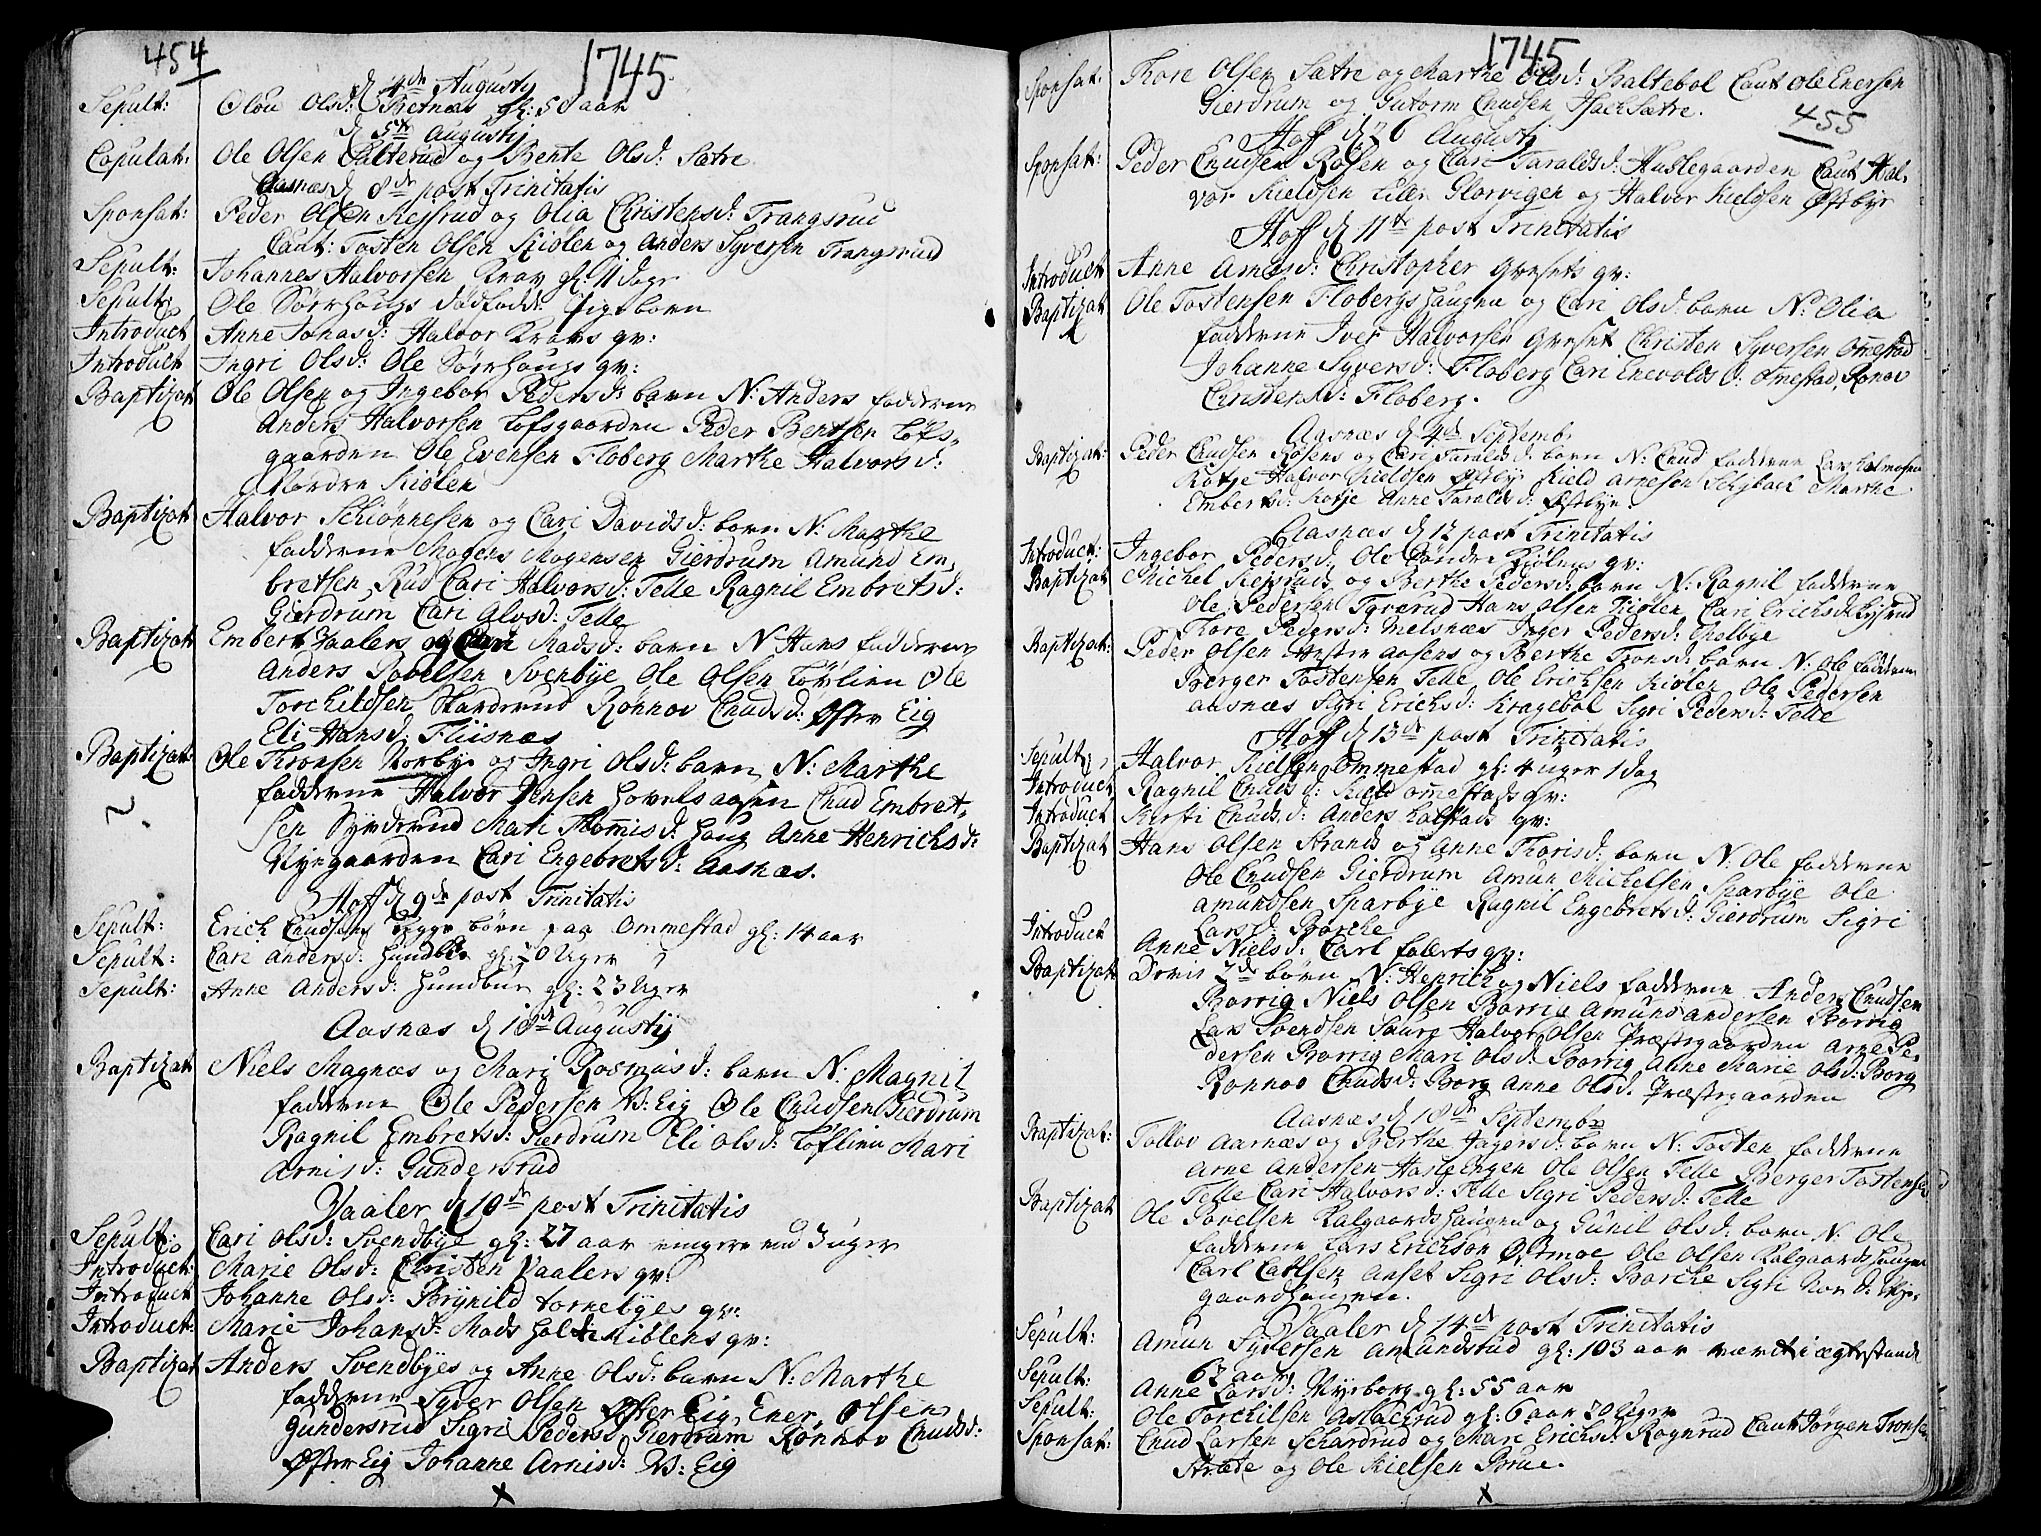 454
1745
d 4de Augusty
Sepult: Olou Olsd: Refnæs gl: 50 aar
d 5te Augustij
Copulat: Ole Olsen Palterud og Bente Olsd: Sætre
Aasnæs d 8de post Trinitatis
Sponsat: Peder Olsen Rejsrud og Olia Christensd: Trangsrud
Caut: Tosten Olsen Kiølen og Anders Syversen Trangsrud
Sepult: Johannes Halvorsen Krav gl: 11 dage
Sepult: Ole Sørrhougs dødfødde Pigebarn
Introduct Anne Jonasd: Halvor Kravs qv:
Introduct Ingri Olsd: Ole Sørrhougs qv:
Baptizat Ole Olsen og Ingebor Pedersd: barn N: Anders fadderne
Anders Halvorsen Løfsgaarden Peder Bentsen Løfs-
gaarden Ole Evensen Floberg Marthe Halvorsd:
Nordre Kiølen
Baptizat Halvor Schiønnesen og Cari Davidsd: barn N: Marthe
fadderne Mogens Mogensen Gierdrum Amund Em-
bretsen Rud Cari Halvorsd: Telle Ragnil Embretsd:
Gierdrum Cari Alvsd: Telle
Baptizat Embert Vaalers og Cari Madsd: barn N: Hans fadderne
Anders Povelsen Svenbye Ole Olsen Løvlien Ole
Torchildsen Skarderud Rønnov Cnudsd: Øster Eig
Eli Hansd: Fliisnæs
Baptizat: Ole Thronsen Norbye og Ingri Olsd: barn N: Marthe
fadderne Halvor Jensen Hovelsaasen Cnud Embret-
sen Synderud Mari Thommisd: Houg Anne Henrichsd:
Nyegaarden Cari Engebretsd: Aasnæs.
Hoff d 9de post Trinitatis
Sepult: Erich Cnudsens bygge børn paa Ommestad gl: 14 aar
Sepult: Cari Andersd: Hundbøe gl: 20 Uger
Sepult: Anne Andersd: Hundbøe gl: 23 Uger
Aasnæs d 10de Augustij
Baptizat Niels Magnæs og Mari Rasmusd: barn N: Magnil
fadderne Ole Pedersen V: Eig Ole Cnudsen Gierdrum
Ragnil Embretsd: Gierdrum Eli Olsd: Løflien Mari
Arnisd: Gundersrud
Vaaler d 10de post Trinitatis
Sepult: Cari Olsd: Svendbye gl: 27 aar ringere end 3 uger
Introduct: Marie Olsd: Christen Vaalers qv:
Introduct Johanne Olsd: Brynild Tornebyes qv:
Introduct: Marie Johansd: Mads Holtekiølens qv:
Baptizat Anders Svendbyes og Anne Olsd: barn N: Marthe
fadderne Syver Olsen Øster Eig, Ener Olsen
Gundersrud Sigri Pedersd: Gierdrum Rønnov Cnudsd:
Øster Eig Johanne Arnisd: V: Eig
x
1745
455
Sponsat: Thore Olsen Sætre og Marthe Olsd: Baltebøl Caut Ole Enersen
Gierdrum og Gutorm Cnudsen Isack Sætre.
Hoff d 26 Augustj
Sponsat: Peder Cnudsen Rosen og Cari Taraldsd: Huslegaarden Caut Hal-
vor Kieldsen Lille Glorvigen og Halvor Kieldsen Østbye
Hoff d 11te post Trinitatis
Introduct Anne Arnesd: Christopher Qvesets qv:
Baptizat Ole Tostensen Flobergshaugen og Cari Olsd: barn N: Olia
fadderne Iver Halvorsen Qveset Christen Syversen Omestad
Johanne Syversd: Floberg Cari Enevoldsd: Omestad, Rønov
Christensd: Floberg.
Aasnæs d 4de Septembr
Baptizat: Peder Cnudsen Rosens og Cari Taraldsd: barn N: Cnud fadderne Lars Holmosen
Kotje Halvor Kieldsen Østbye Kield Arnesen Seigback Marthe
Embertsd: Kotje Anne Taraldsd: Østbye.
Aasnæs d 12 post Trinitatis
Introduct: Ingebor Pedersd: Ole Søndre Kiølens qv:
Baptizat Michel Rejsruds og Berthe Pedersd: barn N: Ragnil fadderne
Ole Pedersen Tyrerud Hans Olsen Kiølen Cari Erichsd: Rejsrud
Thore Pedersd: Melsnæs Inger Pedersd: Spelbye
Baptizat: Peder Olsen Vester Aasens og Berthe Tronsd: barn N: Ole fadderne
Berger Tostensen Telle Ole Erichsen Kiølen Ole Pedersen
Aasnæs Sigri Erichsd: Kragebøl Sigri Pedersd: Telle
Hoff d 13de post Trinitatis
Sepult: Halvor Kielsen Ommestad gl: 4 uger 1 dag
Introduct Ragnil Cnudsd: Kield Ommestads qv:
Introduct Kirsti Cnudsd: Anders Kolstads qv:
Baptizat Hans Olsen Strands og Anne Thorisd: barn N: Ole fadderne
Ole Cnudsen Gierdrum Amun Michelsen Sparbye Ole
Amundsen Sparbye Ragnil Engebretsd: Gierdrum Sigri
Larsd: Borche
Introduct Anne Nielsd: Carl Folerts qv:
Baptizat Dovis 2de børn N: Henrich og Niels fadderne Anders Cnudsen
Borrig Niels Olsen Borrig Amund Andersen Borrig
Lars Svendsen Saurg Halvor Olsen Præstegaarden Arne Pe-
dersen Borrig Mari Olsd: Borrig Anne Marie Olsd: Borg
Rønnov Cnudsd: Borg Anne Olsd. Præstegaarden
Aasnæs d 18de Septembr
Baptizat: Tollov Aarnæs og Berthe Jagersd: barn N: Tosten fadderne
Arne Andersen Hasleengen Ole Olsen Telle Berger Tostensen
Telle Cari Halvorsd: Telle Sigri Pedersd: Telle
Baptizat Ole Povelsen Kalgaardshaugen og Gunil Olsd: barn N: Ole
fadderne Lars Erichsøn Østmoe Ole Olsen Kalgaardshaugen
Carl Carlsen Anset Sigri Olsd: Borche Sigri Nor d: Nye-
gaardhaugen.
Vaaler d 14de post Trinitatis
Sepult: Amun Syversen Amundstud gl: 103 aar været i ægtestande
62 aar
Sepult: Anne Larsd: Nyeborg gl: 55 aar
Sepult: Ole Torchilsen Aslachrud gl: 6 aar 20 Uger
Sponsat: Cnud Larsen Schardrud og Mari Erichsd: Rognrud Caut Jørgen Tronsen
Stræte og Ole Kielsen Brue.
x